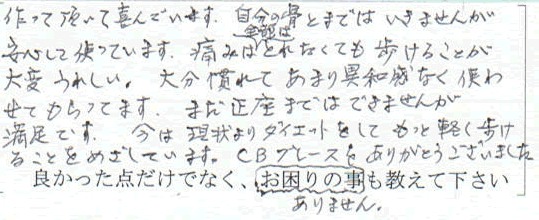 作って頂いて喜んでいます。自分の骨とまではいきませんが
安心して使っています。痛みは全部はとれなくても歩けることが
大変うれしい。大分慣れてあまり異和感なく使わ
せてもらってます。まだ正座まではできませんが
満足です。 今は現状よりダイエットをしてもっと軽く歩け
ることをめざしています。CBブレースをありがとうございました
良かった点だけでなく、お困りの事も教えて下さい
ありません。